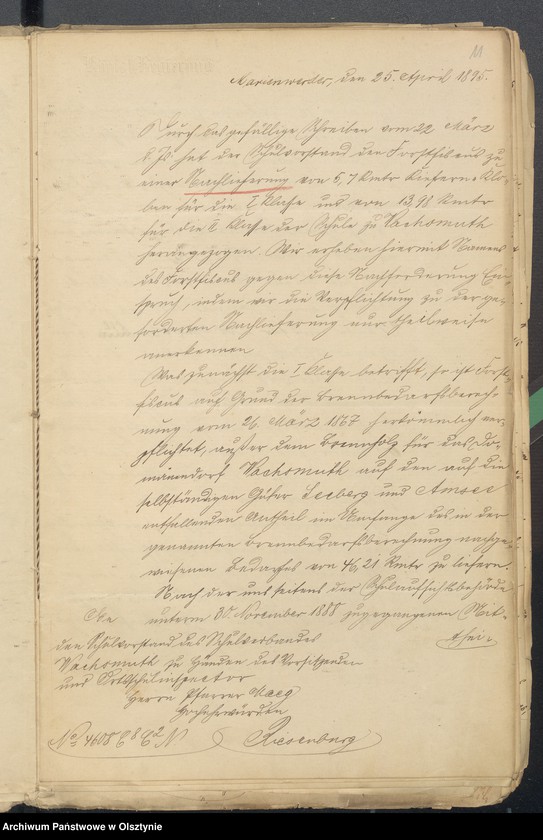 11
Marienwerder, den 25. April 1895.
Durch das gefällige Schreiben vom 22 März
d. Js. hat der Schulvorstand den Forstfiskus zu
einer Nachlieferung von 5,7 Rmtr Kiefern-Klo-
ben für die I Klasse und von 13,98 Rmtr
für die II Klasse der Schule zu Wachsmuth
herangezogen. Wir erheben hiermit Namens
des Forstfiskus gegen diese Nachforderung Ein-
spruch, indem wir die Verpflichtung zu der ge-
forderten Nachlieferung nur theilweise
anerkennen
Was zunächst die I. Klasse betrifft, so ist Forst-
fiskus auf Grund der Brennbedarfsberech-
nung vom 26. März 1867 herkömmlich ver-
pflichtet, außer dem Brennholz für das Do-
mainendorf Wachsmuth auf den auf die
selbständigen Güter Seeberg und Amsee
entfallenden Antheil im Umfange des in der
genannten Brennbedarfsberechnung nachge-
wiesenen Bedarfes von 46,21 Rmtr zu liefern.
Nach der uns seitens der Schulaufsichtsbehörde
unterm 30 November 1888 zugegangenen Mit-
thei-
An
den Schulvorstand des Schulverbandes
Wachsmuth zu Händen des Vorsitzenden
und Ortsschulinspector
Herrn Pfarrer
Hochehrwürden
Riesenburg
No 4608
Archiwum Państwowe w Olsztynie